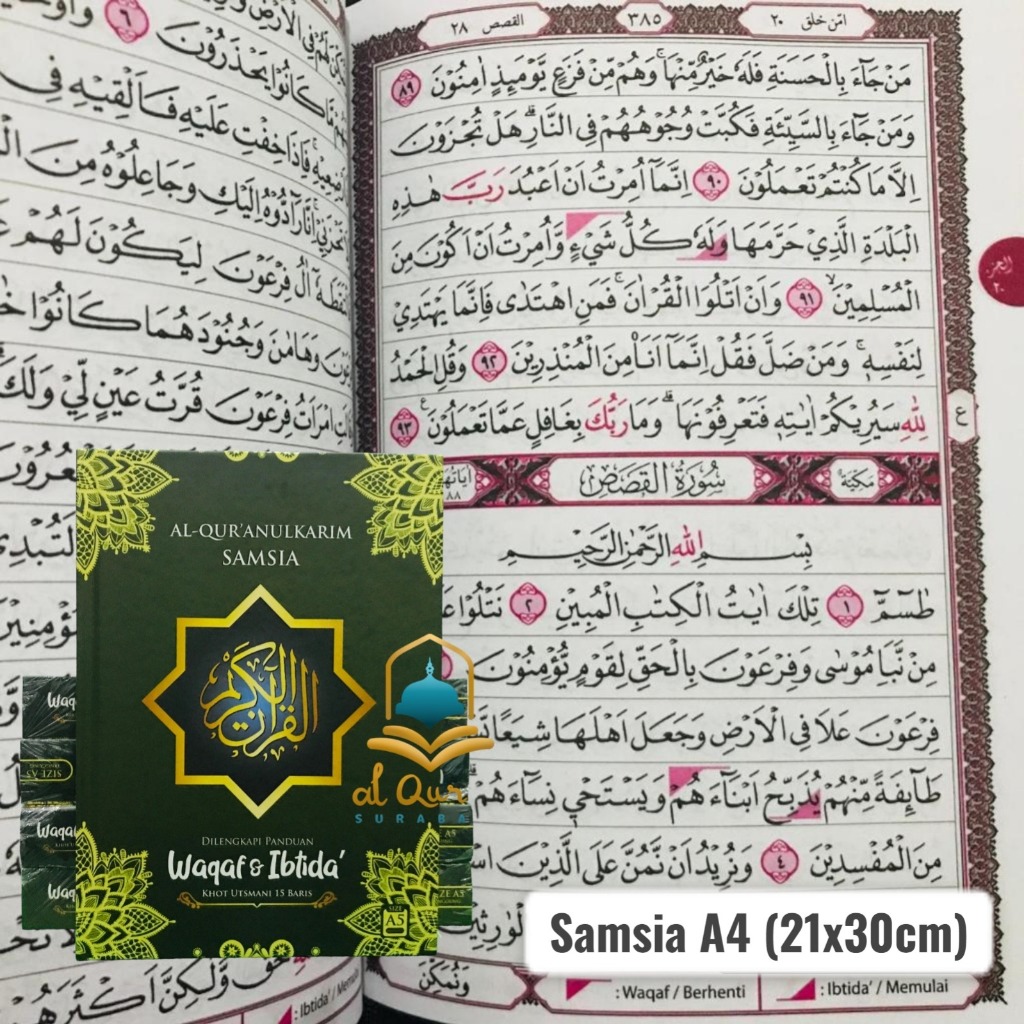 امّن خلق ٢٠
٣٨٥
القصص ٢٨
مَنْ جَاۤءَ بِالْحَسَنَةِ فَلَهٗ خَيْرٌ مِّنْهَاۚ وَهُمْ مِّنْ فَزَعٍ يَّوْمَىِٕذٍ اٰمِنُوْنَ ٨٩
وَمَنْ جَاۤءَ بِالسَّيِّئَةِ فَكُبَّتْ وُجُوْهُهُمْ فِى النَّارِۗ هَلْ تُجْزَوْنَ
اِلَّا مَا كُنْتُمْ تَعْمَلُوْنَ ٩٠ اِنَّمَآ اُمِرْتُ اَنْ اَعْبُدَ رَبَّ هٰذِهِ
الْبَلْدَةِ الَّذِيْ حَرَّمَهَا وَلَهٗ كُلُّ شَيْءٍ وَّاُمِرْتُ اَنْ اَكُوْنَ مِنَ
الْمُسْلِمِيْنَۙ ٩١ وَاَنْ اَتْلُوَا الْقُرْاٰنَۚ فَمَنِ اهْتَدٰى فَاِنَّمَا يَهْتَدِيْ
لِنَفْسِهٖۚ وَمَنْ ضَلَّ فَقُلْ اِنَّمَآ اَنَا۠ مِنَ الْمُنْذِرِيْنَ ٩٢ وَقُلِ الْحَمْدُ
لِلّٰهِ سَيُرِيْكُمْ اٰيٰتِهٖ فَتَعْرِفُوْنَهَاۗ وَمَا رَبُّكَ بِغَافِلٍ عَمَّا تَعْمَلُوْنَ ࣖ ٩٣
مكيّة
سُوْرَةُ الْقَصَصِ
اياتها ٨٨
بِسْمِ اللّٰهِ الرَّحْمٰنِ الرَّحِيْمِ
طٰسۤمّۤ ١ تِلْكَ اٰيٰتُ الْكِتٰبِ الْمُبِيْنِ ٢ نَتْلُوْا
مِنْ نَّبَاِ مُوْسٰى وَفِرْعَوْنَ بِالْحَقِّ لِقَوْمٍ يُّؤْمِنُوْنَ
فِرْعَوْنَ عَلَا فِى الْاَرْضِ وَجَعَلَ اَهْلَهَا شِيَعًا
طَاۤىِٕفَةً مِّنْهُمْ يُذَبِّحُ اَبْنَاۤءَهُمْ وَيَسْتَحْيٖ نِسَاۤءَهُمْ
مِنَ الْمُفْسِدِيْنَ ٤ وَنُرِيْدُ اَنْ نَّمُنَّ عَلَى الَّذِيْنَ
وَنُمَكِّنَ
: Waqaf / Berhenti
: Ibtida' / Memulai
ع
الجزء
٢٠
يَحْذَرُوْنَ ٦ وَاَوْحَيْنَآ
فَاِذَا خِفْتِ عَلَيْهِ فَاَلْقِيْهِ فِى
اِنَّا رَاۤدُّوْهُ اِلَيْكِ وَجَاعِلُوْهُ مِنَ
اٰلُ فِرْعَوْنَ لِيَكُوْنَ لَهُمْ
وَهَامٰنَ وَجُنُوْدَهُمَا كَانُوْا
امْرَاَتُ فِرْعَوْنَ قُرَّتُ عَيْنٍ لِّيْ وَلَكَ
وَّلٰكِنَّ اَكْثَرَهُمْ
AL-QUR'ANULKARIM
SAMSIA
القرآن الكريم
DILENGKAPI PANDUAN
Waqaf & Ibtida'
KHOT UTSMANI 15 BARIS
SIZE
A5
al Qur
SURABA
Samsia A4 (21x30cm)